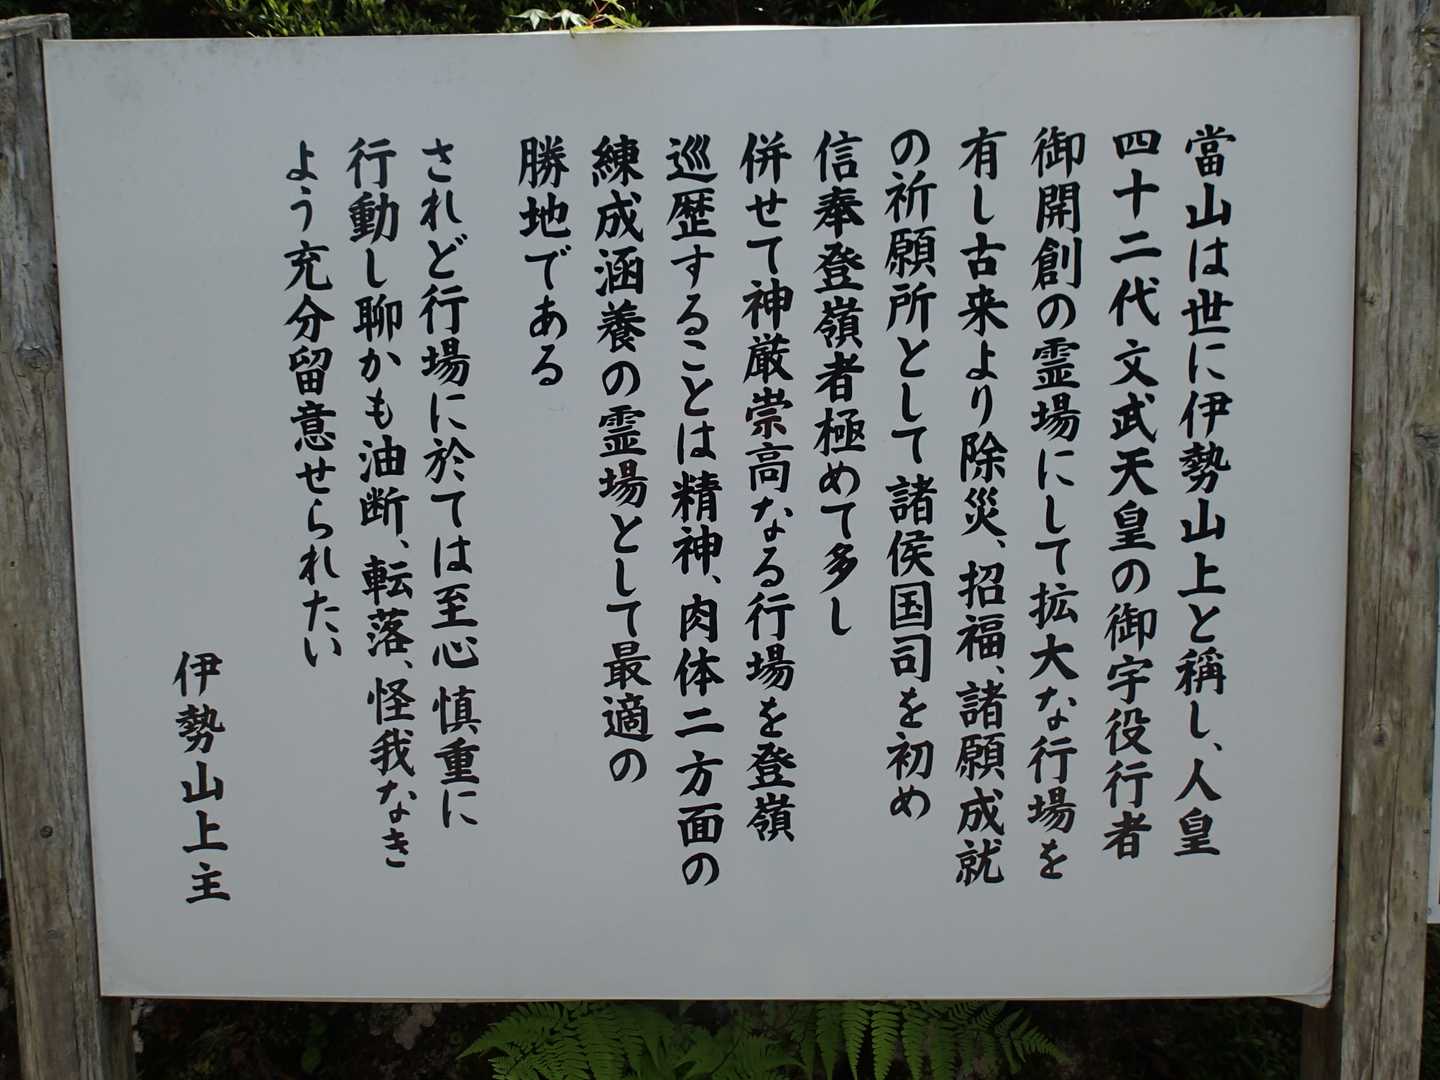 當山は世に伊勢山上と稱し、人皇
四十二代文武天皇の御宇役行者
御開創の霊場にして拡大な行場を
有し古来より除災、招福、諸願成就
の祈願所として諸侯国司を初め
信奉登嶺者極めて多し
併せて神厳崇高なる行場を登嶺
巡歴することは精神、肉体二方面の
練成涵養の霊場として最適の
勝地である
されど行場に於ては至心慎重に
行動し聊かも油断、転落、怪我なき
よう充分留意せられたい
伊勢山上主